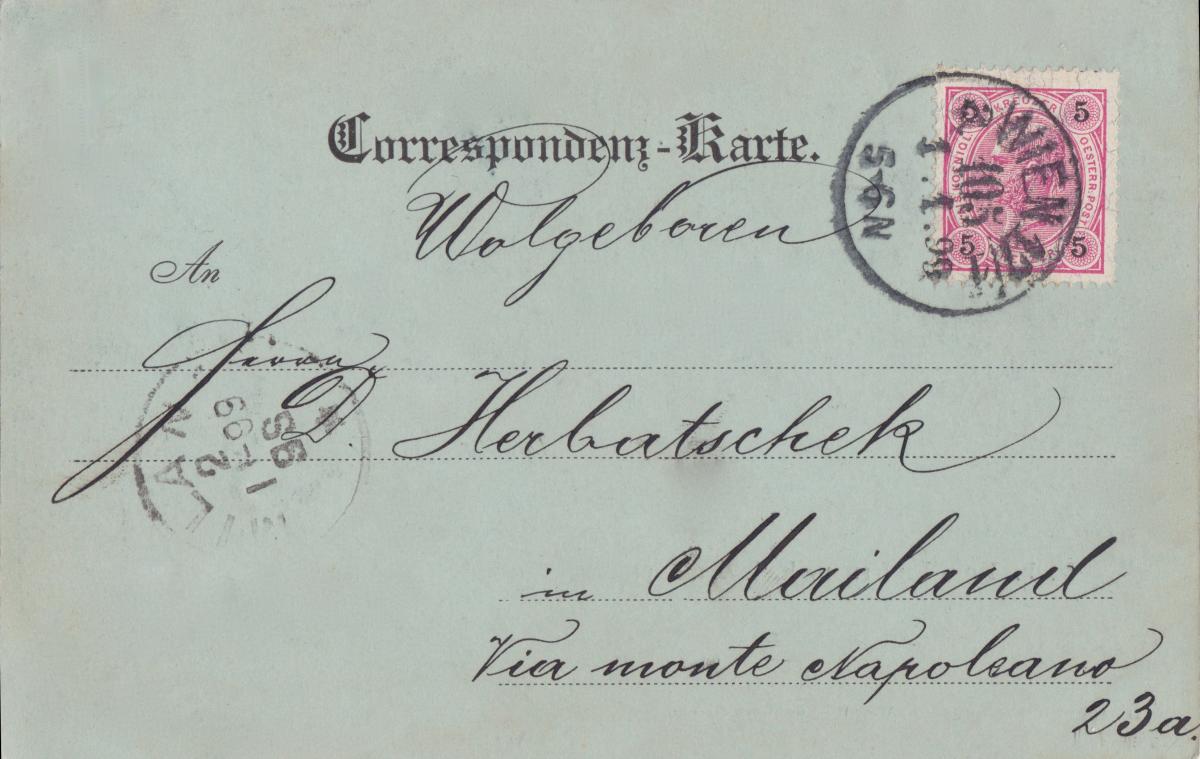 Correspondenz-Karte.
5 KREUZER 5
OESTERR. POST
5 5
WIEN
10 5
1. 1. 99
5-6N
Wolgeboren
An
Herrn
D. Herbatschek
in Mailand
Via monte Napoleano
23a.
MILAN
2 1-99
9S